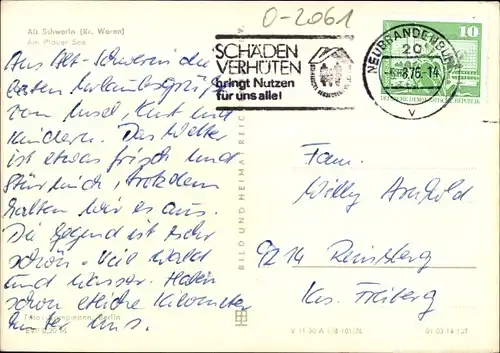 O-2061
Alt Schwerin (Kr. Waren)
Am Plauer See
SCHÄDEN
VERHÜTEN
bringt Nutzen
für uns alle!
NEUBRANDENBURG
20
8.76.-14
V
10
DEUTSCHE DEMOKRATISCHE REPUBLIK
Aus Alt-Schwerin die
besten Urlaubsgrüße
von Insel, Kurt und
Kindern. Das Wetter
ist etwas frisch und
stürmisch, trotzdem
halten wir es aus.
Die Gegend ist sehr
schön. Viel Wald
und Wasser. Haben
schon etliche Kilometer
hinter uns.
Fam.
Willy
9214 Reinsberg
Krs. Freiberg
BILD UND HEIMAT REICHENBACH
Berlin
EVP 0,20 M
V 11 50 A 1/B 101/76
01 03 14 127